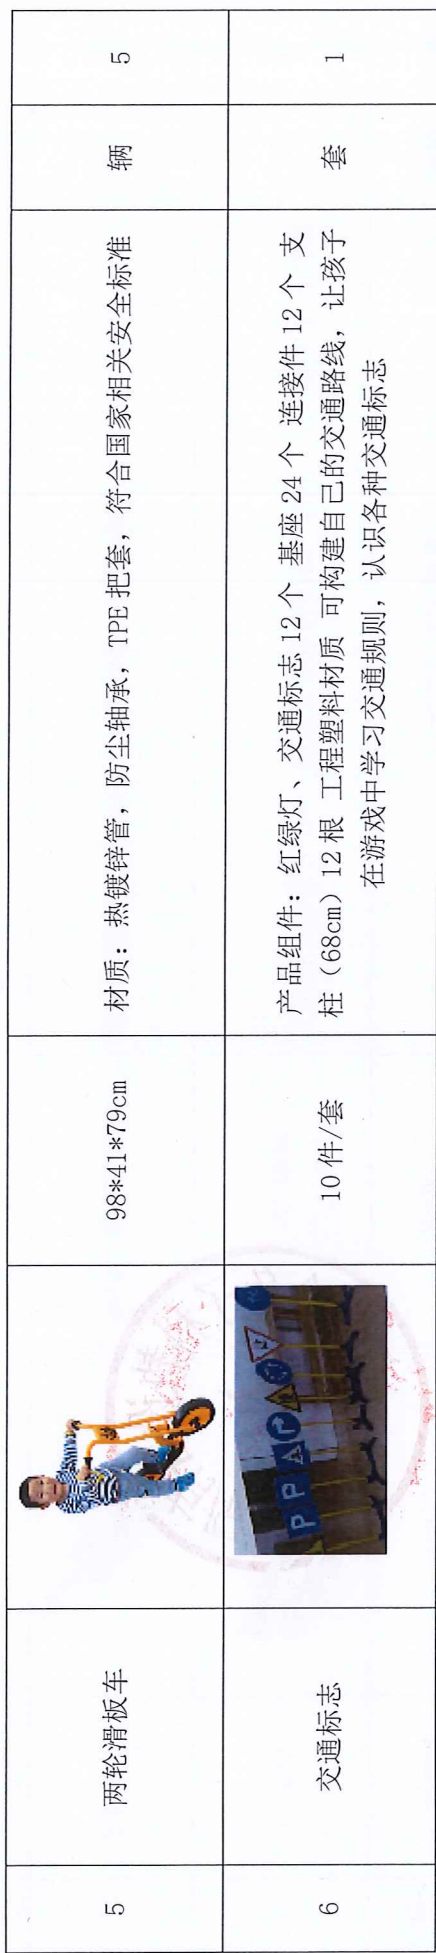 5
两轮滑板车
98*41*79cm
材质：热镀锌管，防尘轴承，TPE 把套，符合国家相关安全标准
辆
5
6
交通标志
P
P
10 件/套
产品组件：红绿灯、交通标志 12 个 基座 24 个 连接件 12 个 支
柱（68cm）12 根 工程塑料材质 可构建自己的交通路线，让孩子
在游戏中学习交通规则，认识各种交通标志
套
1